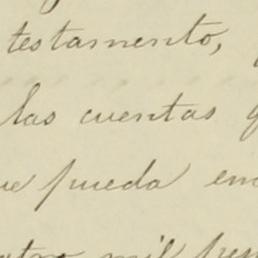 testamento,
las cuentas
pueda
mil